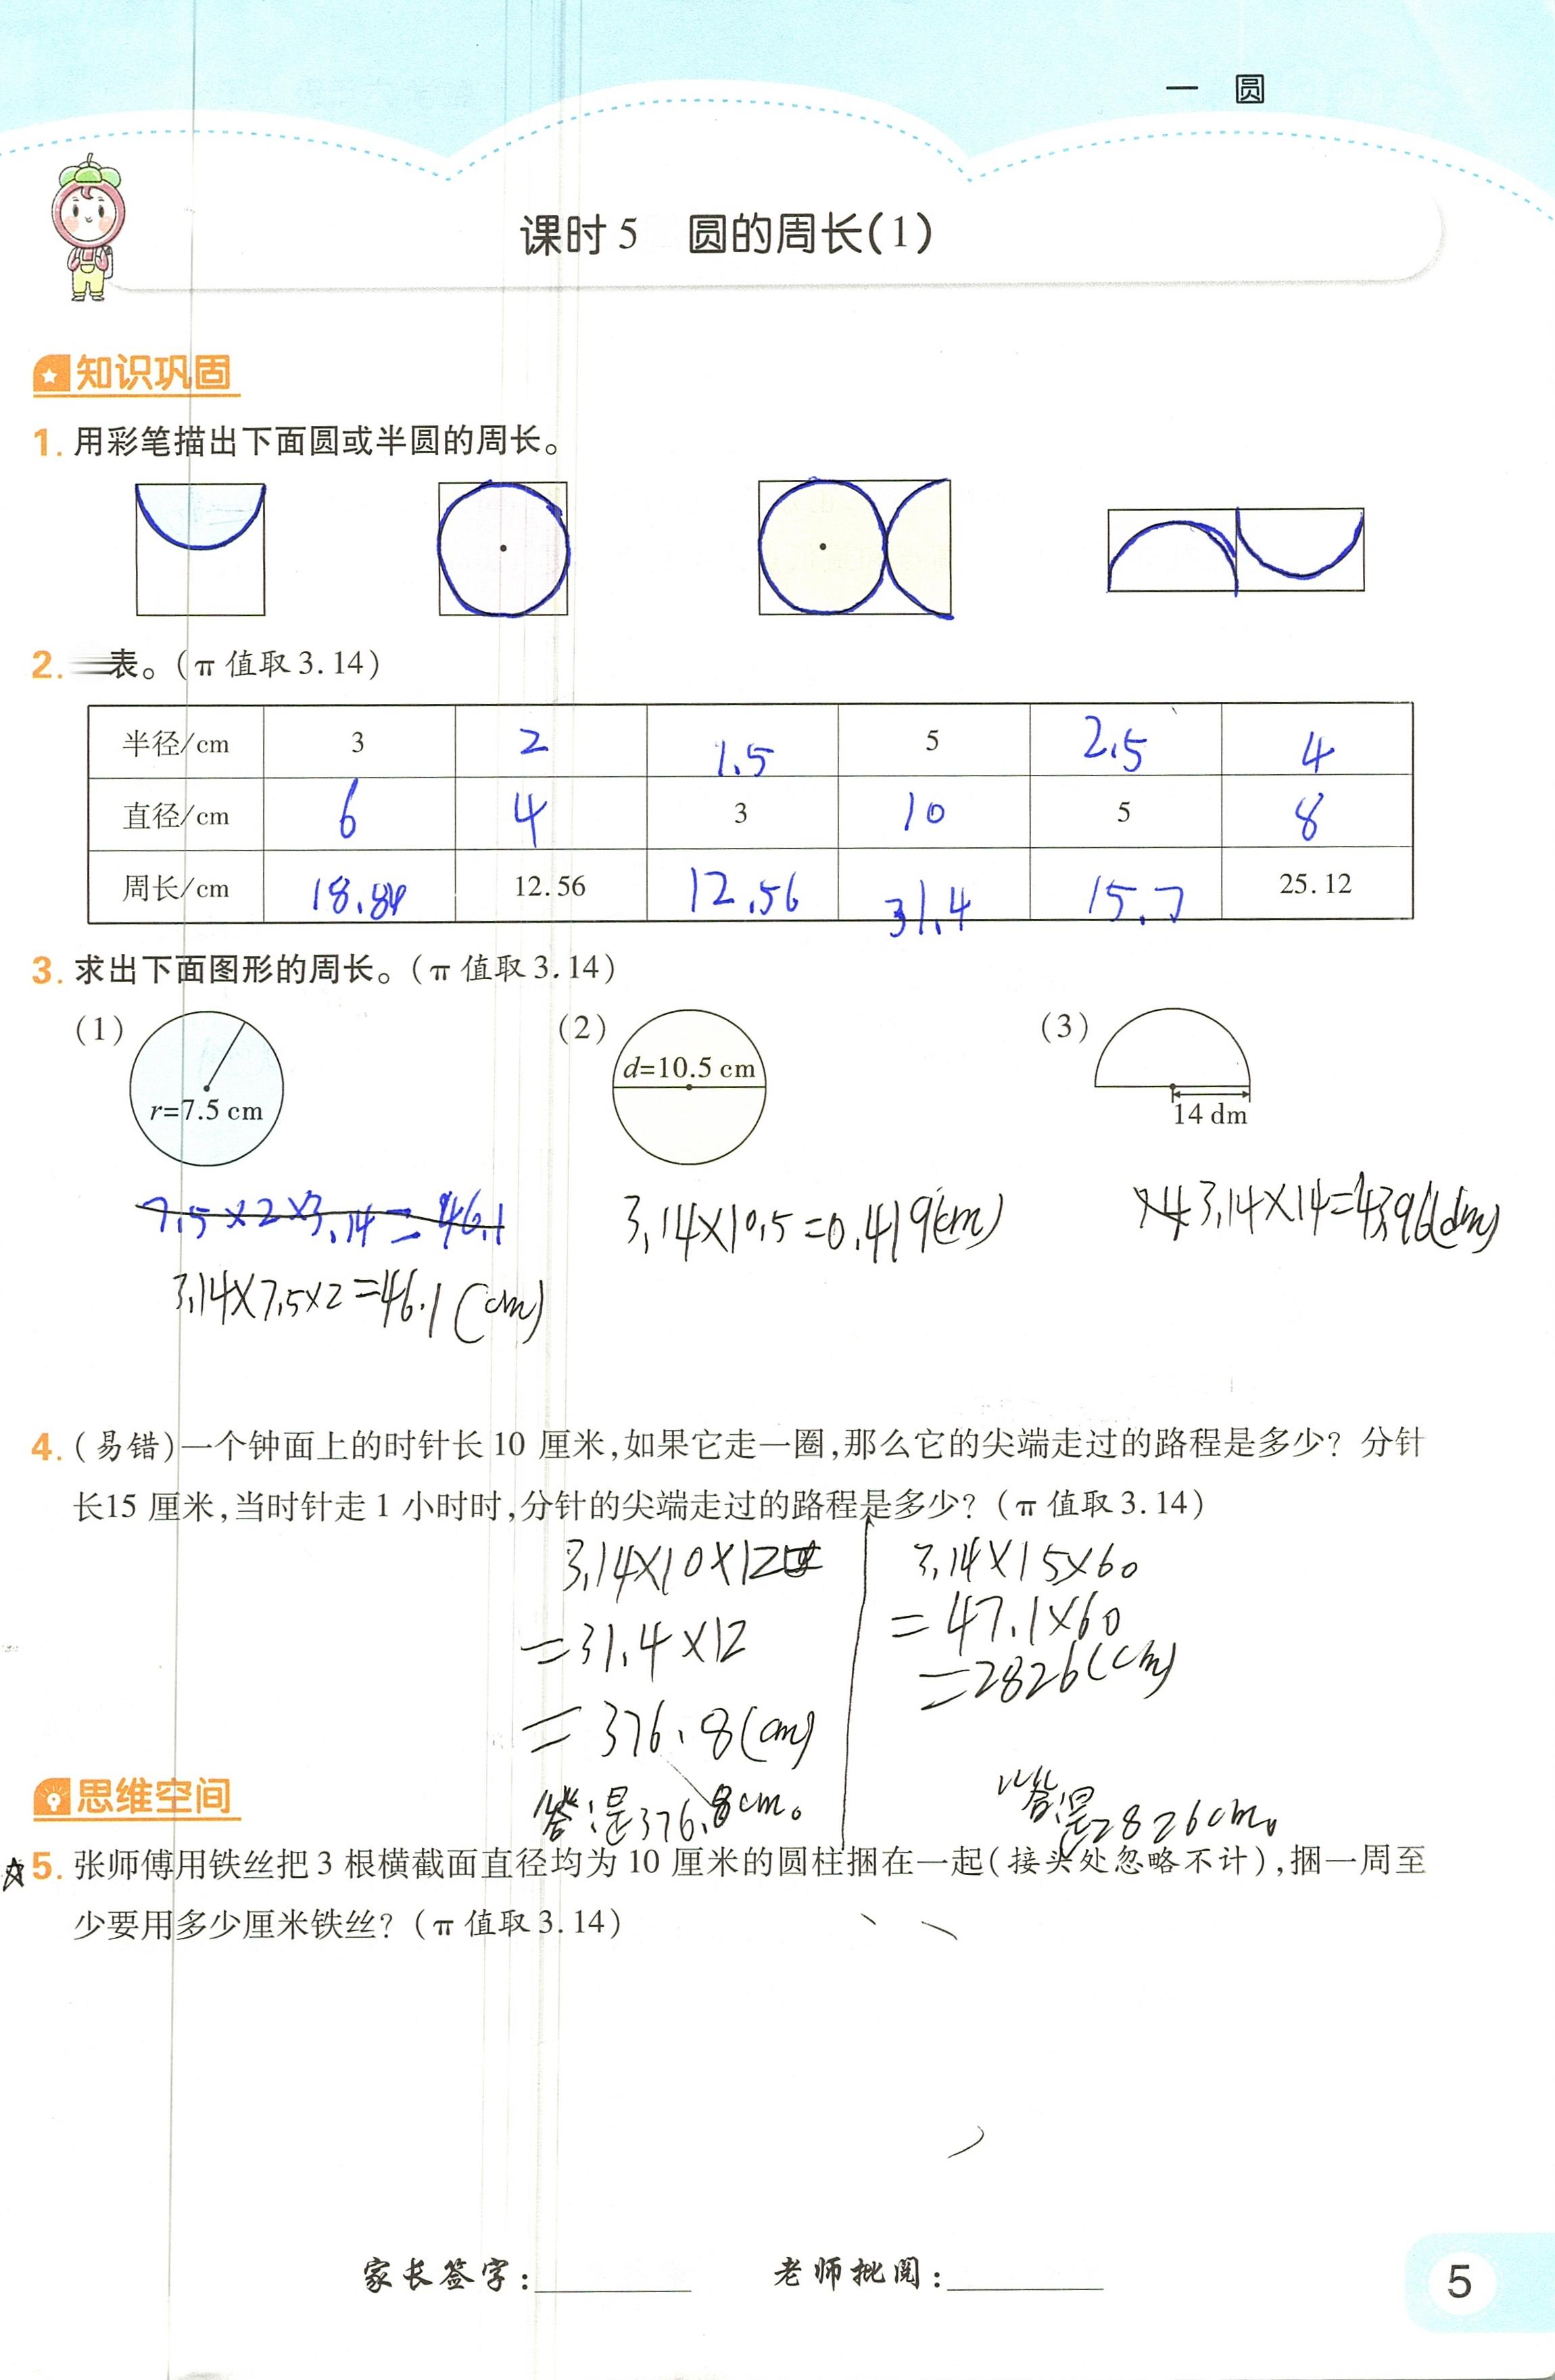 一 圆
课时5 圆的周长(1)
知识巩固
1. 用彩笔描出下面圆或半圆的周长。
2. 表。(π值取3.14)
半径/cm 3 2 1.5 5 2.5 4
直径/cm 6 4 3 10 5 8
周长/cm 18.84 12.56 12.56 31.4 15.7 25.12
3. 求出下面图形的周长。(π值取3.14)
(1) (2) (3)
r=7.5 cm d=10.5 cm 14 dm
7.5×2×3.14=46.1
3.14×7.5×2=46.1(cm)
3.14×10.5=0.419(cm)
3.14×14=43.96(dm)
4. (易错)一个钟面上的时针长10厘米,如果它走一圈,那么它的尖端走过的路程是多少?分针
长15厘米,当时针走1小时时,分针的尖端走过的路程是多少?(π值取3.14)
3.14×10×12
=31.4×12
=376.8(cm)
答:是376.8cm。
3.14×15×60
=47.1×60
=2826(cm)
答:是2826cm。
思维空间
☆5. 张师傅用铁丝把3根横截面直径均为10厘米的圆柱捆在一起(接头处忽略不计),捆一周至
少要用多少厘米铁丝?(π值取3.14)
家长签字:________ 老师批阅:________
5